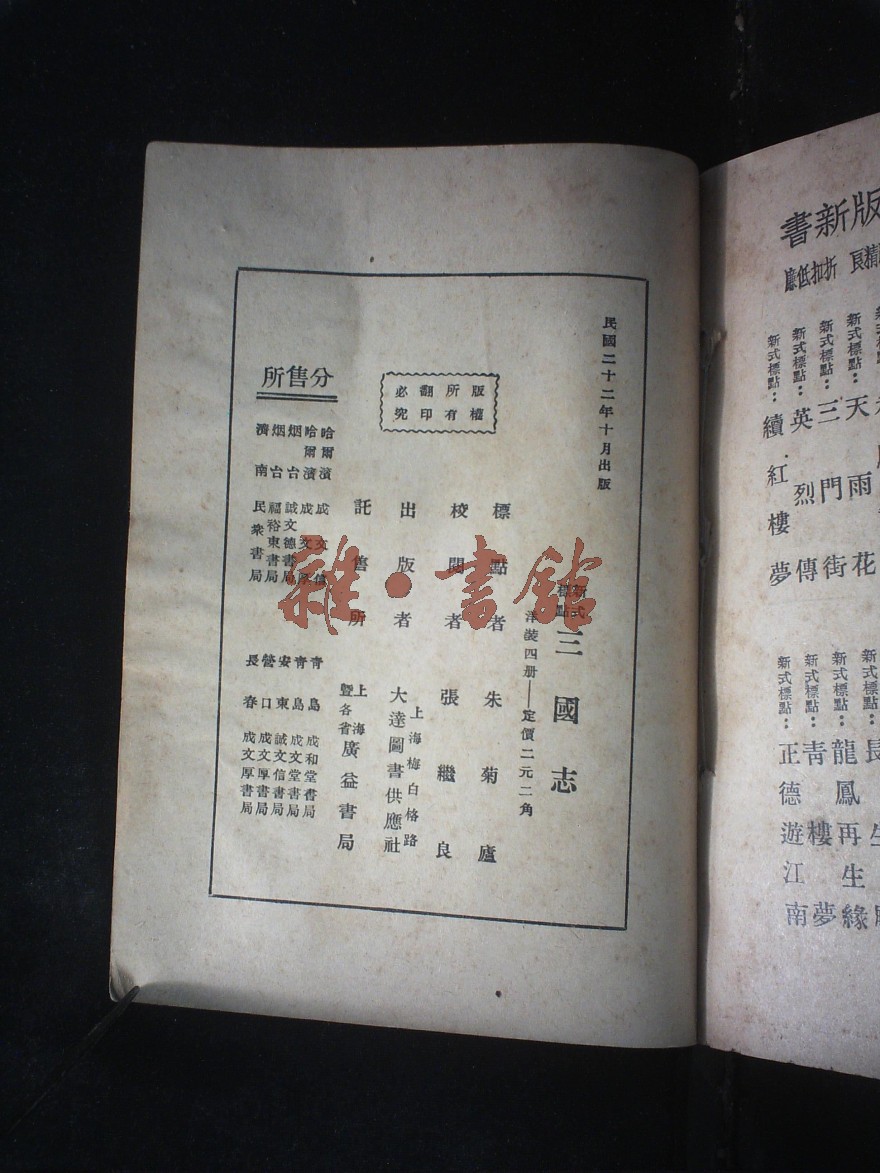 民國二十二年十月出版
新式標點
三國志
洋裝四册——定價二元二角
版權
所有
翻印
必究
標點者 朱菊廬
校閱者 張繼良
出版者 上海梅白格路
大達圖書供應社
託售所 上海
暨各省 廣益書局
分售所
哈爾濱 成文信
哈爾濱 成文厚
烟台 誠文德書局
烟台 福裕東書局
濟南 民衆書局
青島 成和堂書局
青島 成文堂書局
安東 誠文信書局
營口 成文厚書局
長春 成文厚書局
雜·書館
版新書
折扣低廉
新式標點：天雨花
新式標點：三門街
新式標點：英烈傳
新式標點：續紅樓夢
新式標點：長生
新式標點：龍鳳再生緣
新式標點：靑樓夢
新式標點：正德遊江南